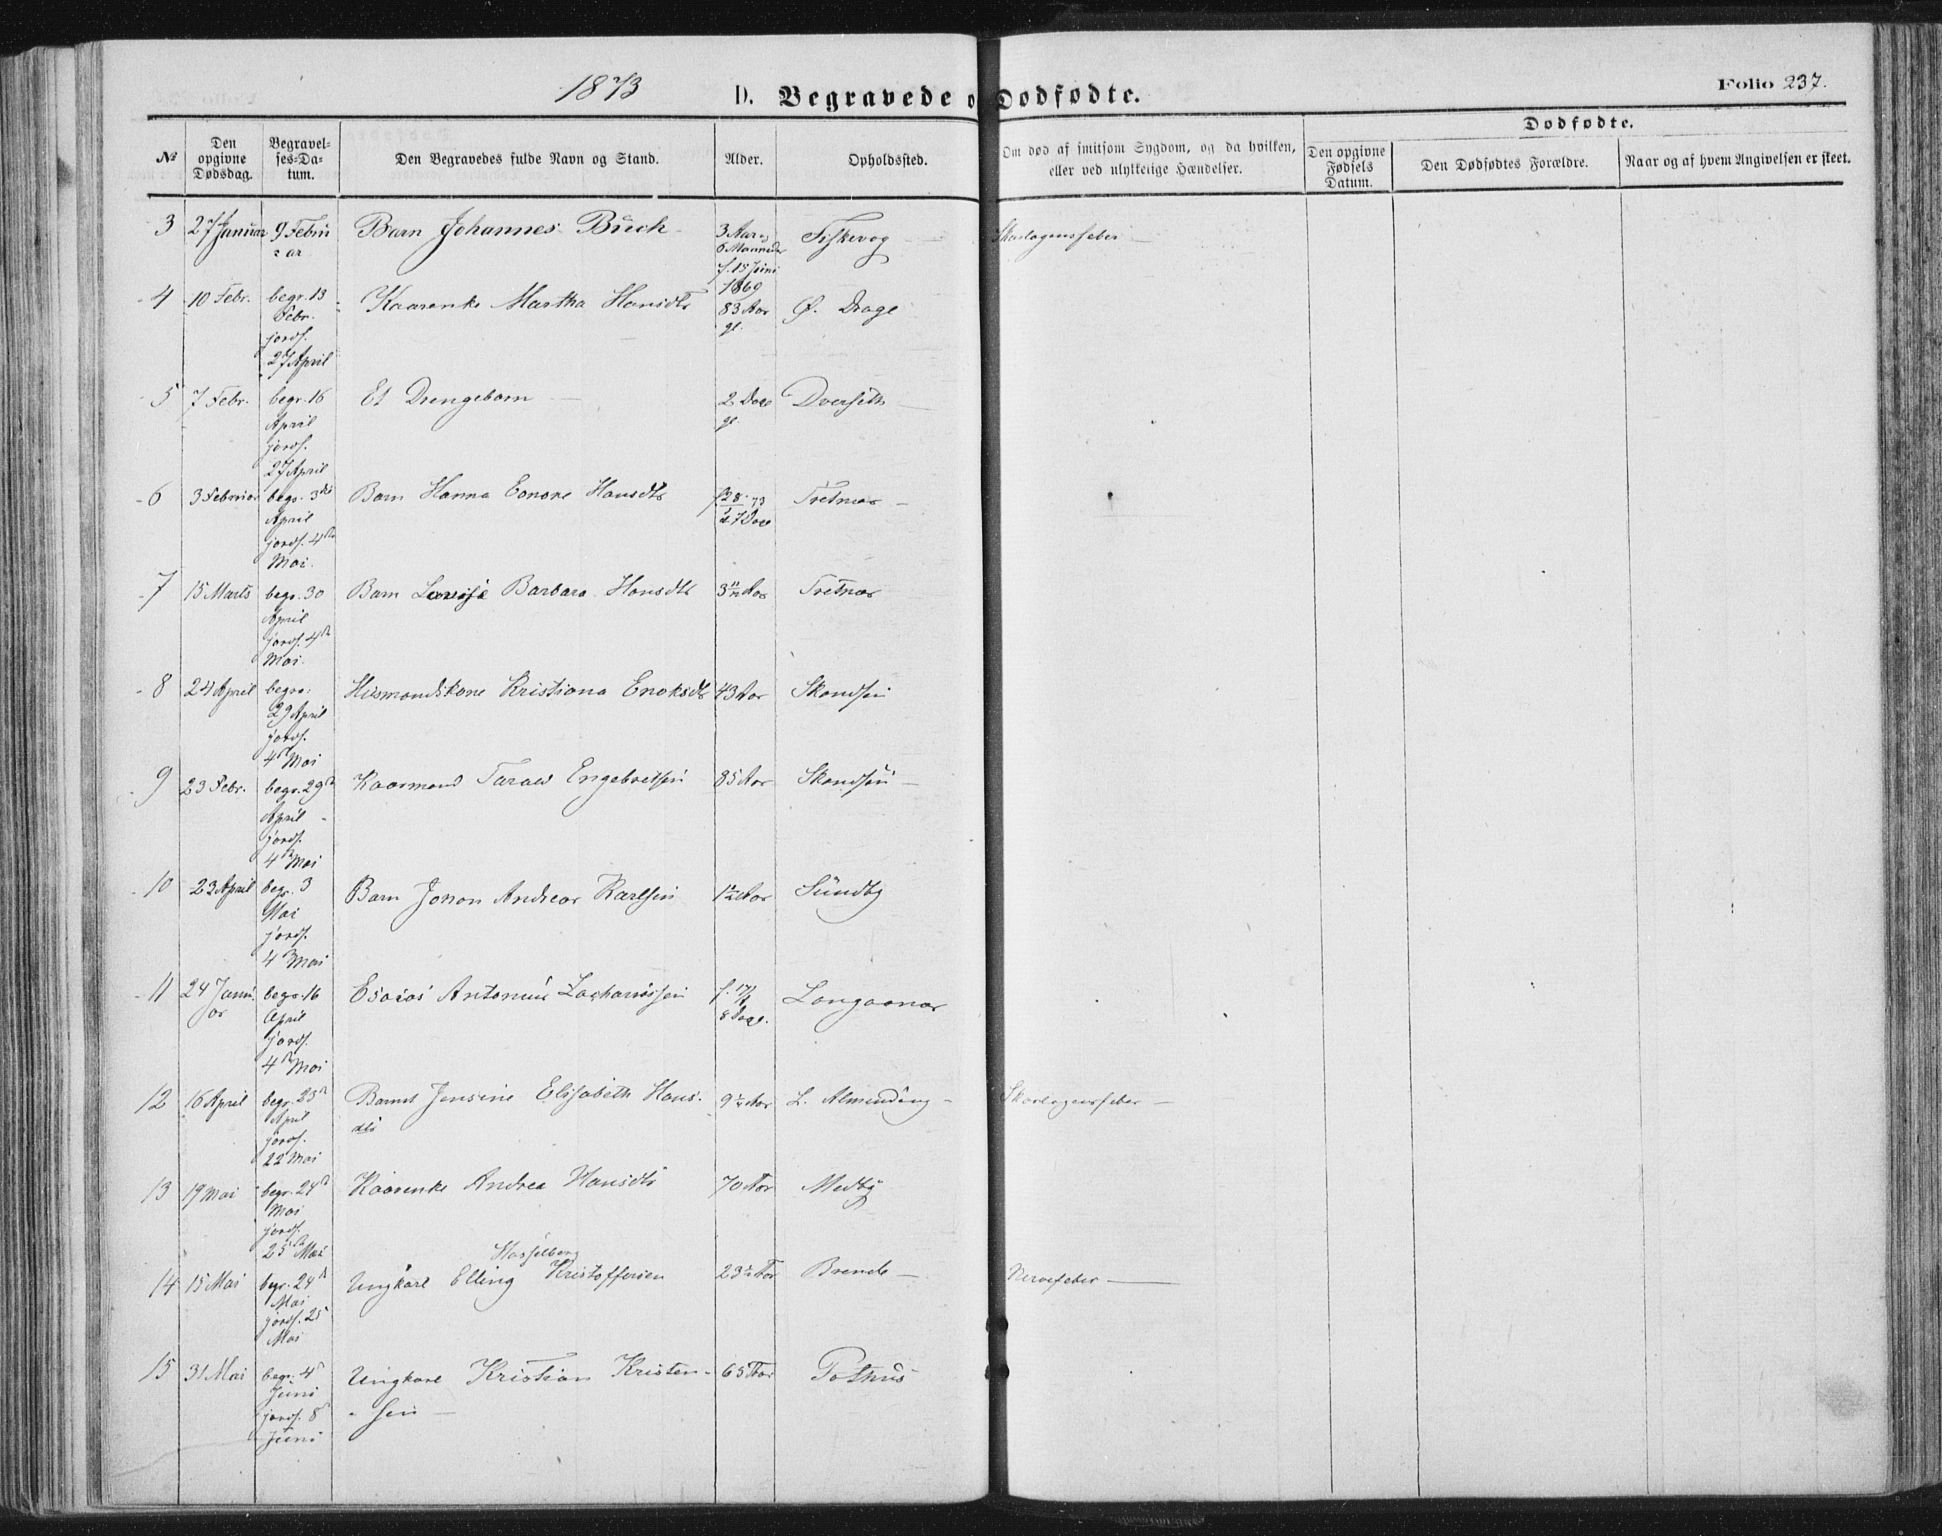 1873
D. Begravede o Dødfødte.
Folio 237.
№
Den opgivne Dødsdag.
Begravel-ses-Da-tum.
Den Begravedes fulde Navn og Stand.
Alder.
Opholdssted.
Om død af smitsom Sygdom, og da hvilken, eller ved ulykkelige Hændelser.
Dødfødte.
Den opgivne Fødsels Datum.
Den Dødfødtes Forældre.
Naar og af hvem Angivelsen er skeet.
3 27 Januar 9 Febru Barn Johannes Buch 3 Aar Fiskevog Skarlagensfeber
ar 6 Maaneder
f. 15 Juni
1869
4 10 Febr. begr. 13 Kaarenke Martha Hansdtr 83 Aar Ø. Drage
Febr. gl.
jordf.
27 April
5 7 Febr. begr. 16 Et Drengebarn 2 Dage Dverseth
April gl.
jordf.
27 April
6 3 Februar begr. 3 Barn Hanna Eonore Hansdtr Tretnes
April 7 Dage
jordf. 4
Mai.
7 15 Marts begr. 30 Barn Lovise Barbara Hansdtr 3 Aar Tretnes
April
jordf. 4
Mai.
8 24 April begr. Husmandskone Kristiana Enoksdtr 43 Aar Skandsen
29 April
jordf.
4 Mai
9 23 Febr. begr. 29 Kaarmand Engebretsen 85 Aar Skandsen
April
jordf.
4 Mai
10 23 April begr. 3 Barn Jonon Andreas Karlsen 1½ Aar Sundby
Mai
jordf.
4 Mai
11 24 Janu begr. 16 Esaias Antonius Zachariassen f. 17/1 Langaanes
ar April 8 Dage.
jordf.
4 Mai
12 16 April begr. 25 Barnet Jensine Elisabeth Hans- 9½ Aar L. Alminding Skarlagensfeber
April dtr
jordf.
22 Mai
13 19 Mai begr. 24 Kaarenke Andrea Hansdtr 70 Aar Medby
Mai
jordf.
25 Mai
Hasselberg
14 15 Mai begr. 24 Ungkarl Elling Kristoffersen 23½ Aar Brende Nervefeber
Mai
jordf. 25
Mai
15 31 Mai begr. 4 Ungkarl Kristian Kristen- 65 Aar Pothus
Juni
jordf. 8 sen
Juni